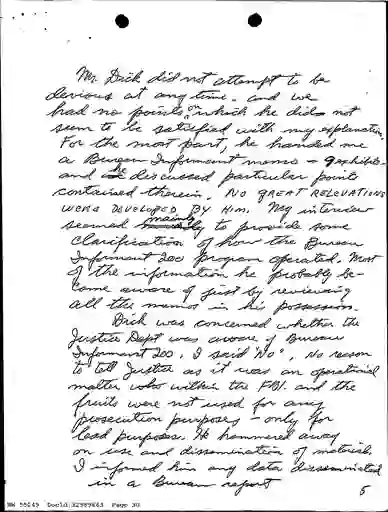 Mr. Dick did not attempt to be
devious at any time - and we
had no points on which he did not
seem to be satisfied with my explanation.
For the most part, he handed me
a Bureau Informant memo - 9 exhibits -
and discussed particular points
contained therein. NO GREAT REVELATIONS
WERE DEVELOPED BY HIM. My interview
seemed mainly to provide some
clarification of how the Bureau
Informant 200 program operated. Most
of the information he probably be-
came aware of just by reviewing
all the memos in his possession.
Dick was concerned whether the
Justice Dept was aware of Bureau
Informant 200, I said "No", no reason
to tell Justice as it was an operational
matter within the FBI and the
fruits were not used for any
prosecution purposes - only for
lead purposes. He hammered away
on use and dissemination of material.
I informed him any data disseminated
in a Bureau report
5
NW 55045 DocId:32989663 Page 30